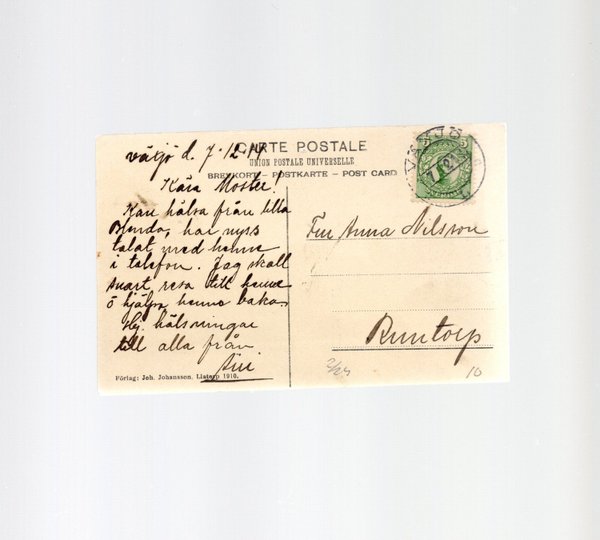 växjö d. 7.12.11
CARTE POSTALE
UNION POSTALE UNIVERSELLE
BREFKORT – POSTKARTE – POST CARD
VÄXJÖ
5
Kära Moster!
Kan hälsa från lilla
Blenda, har nyss
talat med henne
i telefon. Jag skall
snart resa till henne
o hjälpa henne baka.
Hj. hälsningar
till alla från
Fru Anna Nilsson
Runtorp
Förlag: Joh. Johansson, Listerp 1910.
2/24
10